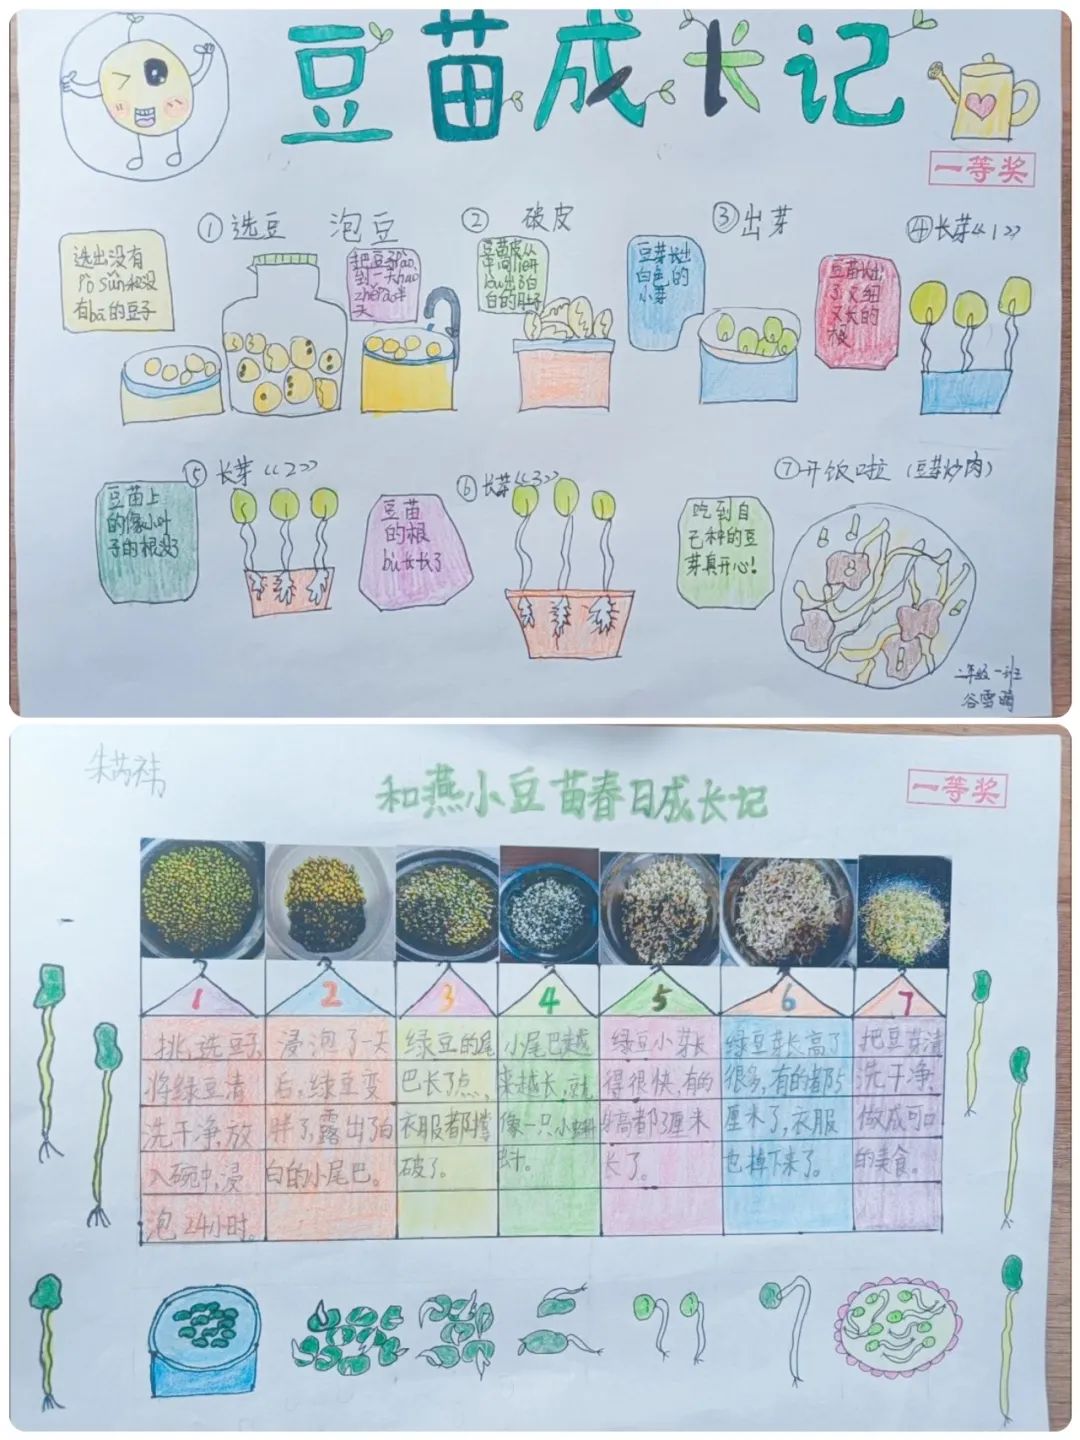 豆苗成长记
一等奖
①选豆 泡豆
选出没有
pò sǔn和没
有bā的豆子
把豆子pào
到一天hao
zhě半
天
② 破皮
豆苗皮从
中间lie开
lòu出了白
白的肚子
③出芽
豆芽长出
白色的
小芽
④长芽《1》
豆苗长出
了又细
又长的
根
⑤长芽《2》
豆苗上
的像小叶
子的根没了
⑥长芽《3》
豆苗
的根
biàn长长了
⑦开饭啦(豆芽炒肉)
吃到自
己种的豆
芽真开心!
二年级一班
谷雪萌
朱芮祎
和燕小豆苗春日成长记
一等奖
1
挑选豆子,
将绿豆清
洗干净,放
入碗中,浸
泡24小时。
2
浸泡了一天
后,绿豆变
胖了,露出了白
白的小尾巴。
3
绿豆的尾
巴长了点,
衣服都被撑
破了。
4
小尾巴越
来越长,就
像一只小蝌
蚪。
5
绿豆小芽长
得很快,有的
身高都3厘米
长了。
6
绿豆芽长高了
很多,有的都5
厘米了,衣服
也掉下来了。
7
把豆芽清
洗干净,
做成可口
的美食。